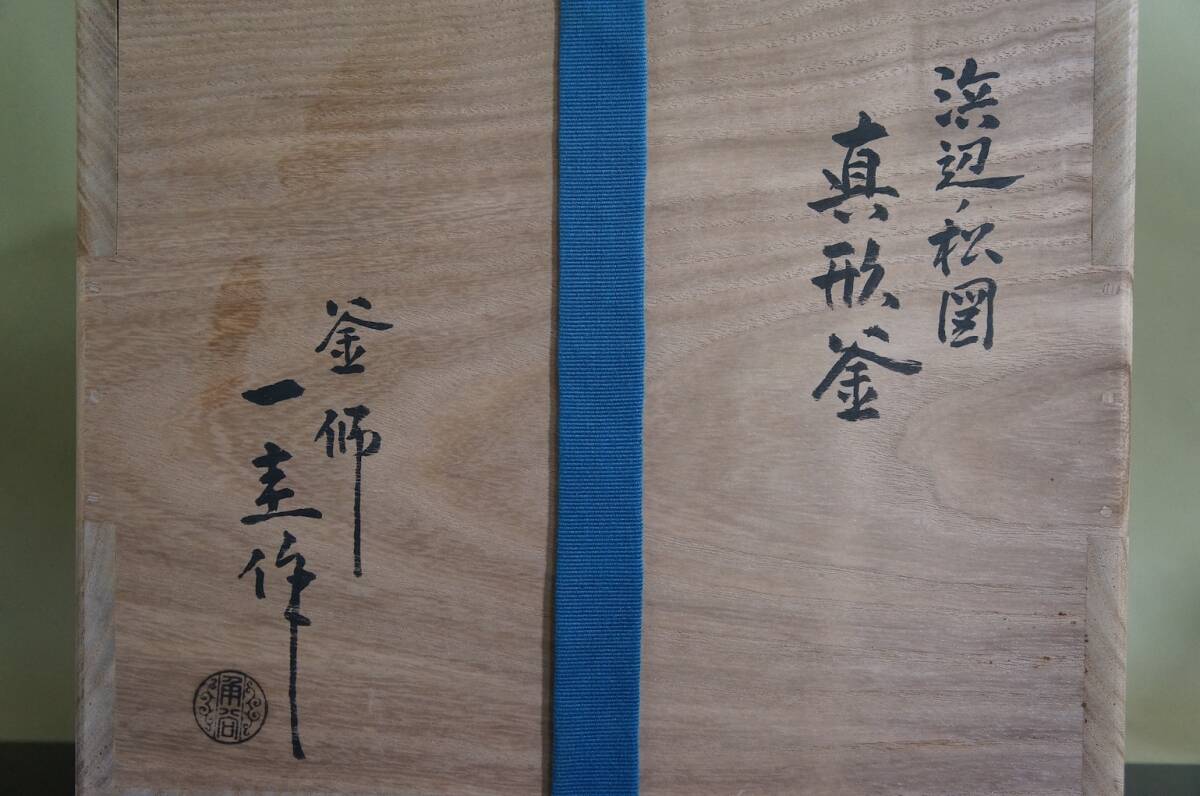 浜辺ノ松図
真形釜
釜師
一圭作
角谷